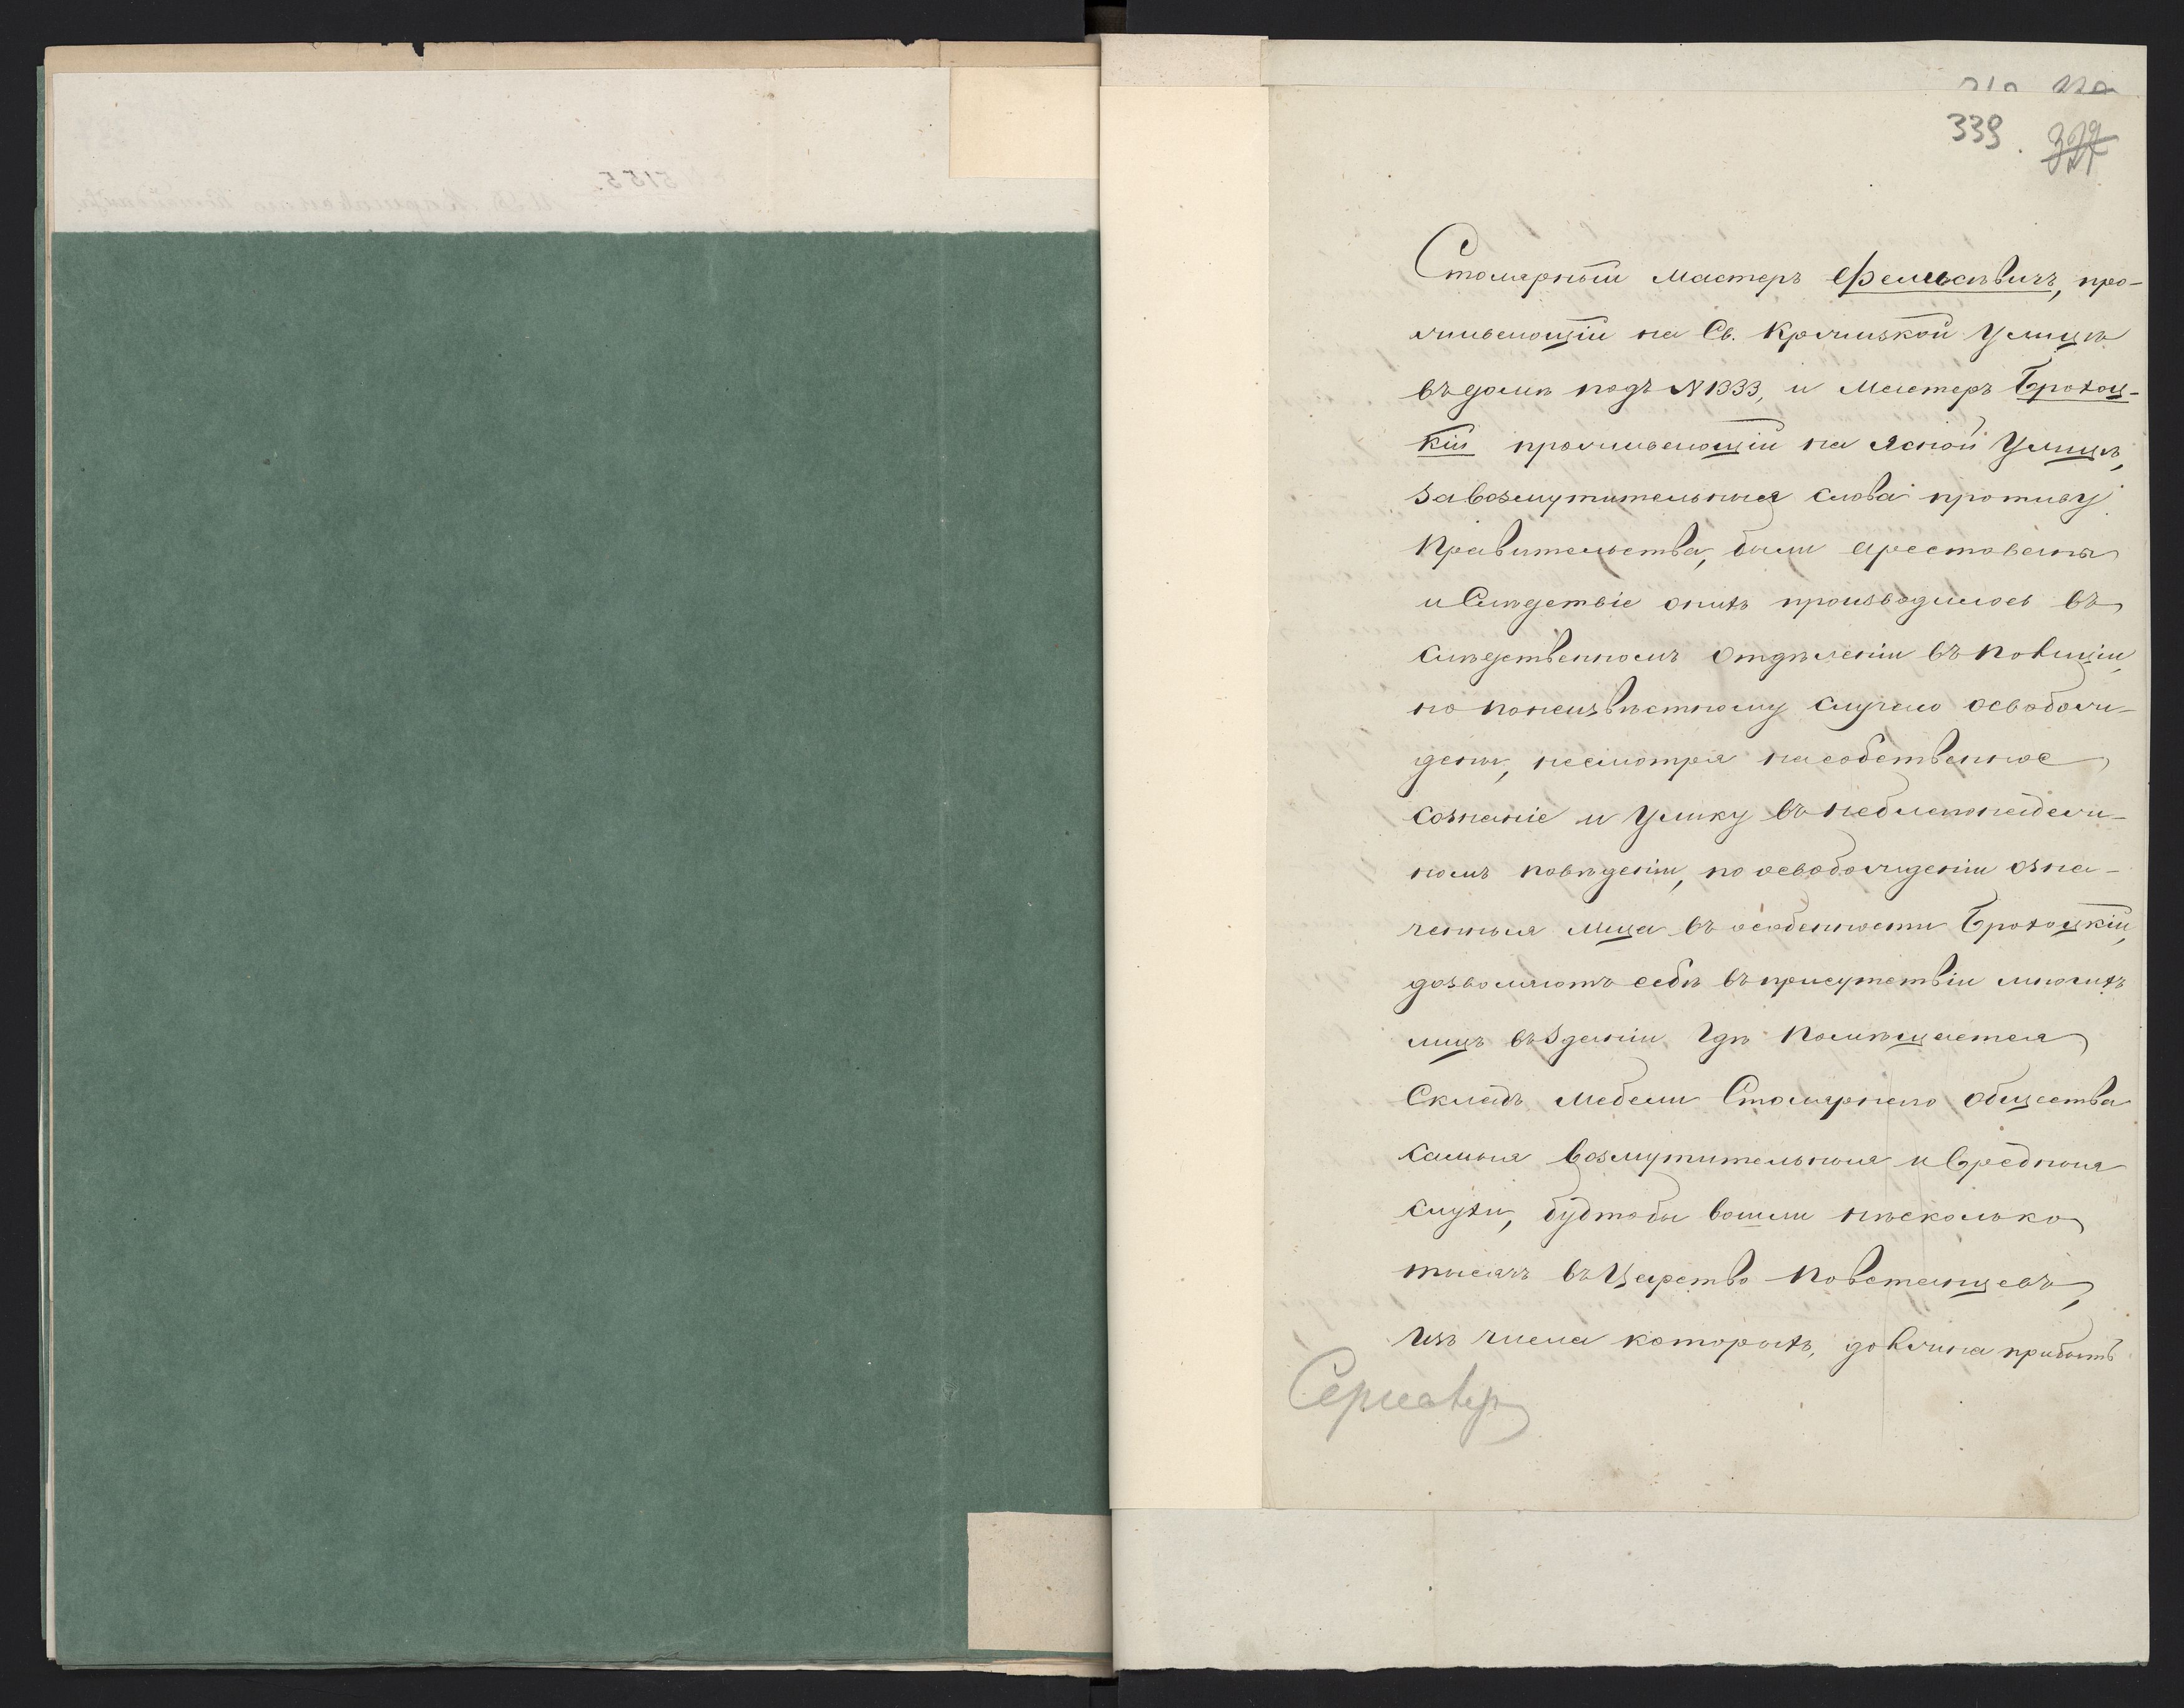 339.
Столярный мастеръ Фельксевичъ, про-
живающій на Св. Крыжской Улицѣ
въ домѣ подъ N 1333, и Мастеръ Брохоц-
кій проживающій на Ясной Улицѣ,
за возмутительныя слова противу
Правительства, были арестованы
и Слѣдствіе о нихъ производилось въ
слѣдственномъ Отдѣленіи въ полиціи,
но по неизвѣстному случаю освобож-
дены, несмотря на собственное
сознаніе и Улику въ неблагонадеж-
номъ поведеніи, по освобожденіи озна-
ченныя лица въ особенности Брохоцкій,
дозволяютъ себѣ въ присутствіи многихъ
лицъ въ Зданіи гдѣ помѣщается
Складъ мебели Столярнаго Общества
самыя возмутительныя и вредныя
слухи, будтобы вошли нѣсколько
тысячъ въ Царство повстанцевъ,
изъ числа которыхъ, должна прибыть